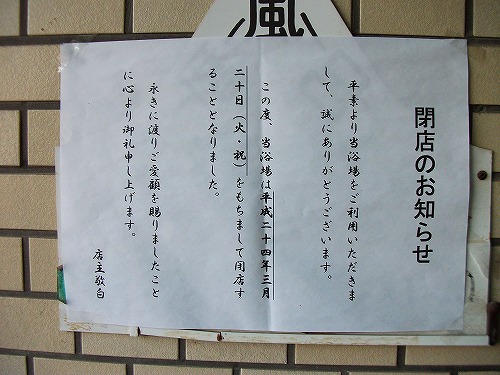 嵐
閉店のお知らせ
平素より当浴場をご利用いただきま
して、誠にありがとうございます。
この度、当浴場は平成二十四年三月
二十日（火・祝）をもちまして閉店す
ることとなりました。
永きに渡りご愛顧を賜りましたこと
に心より御礼申し上げます。
店主敬白